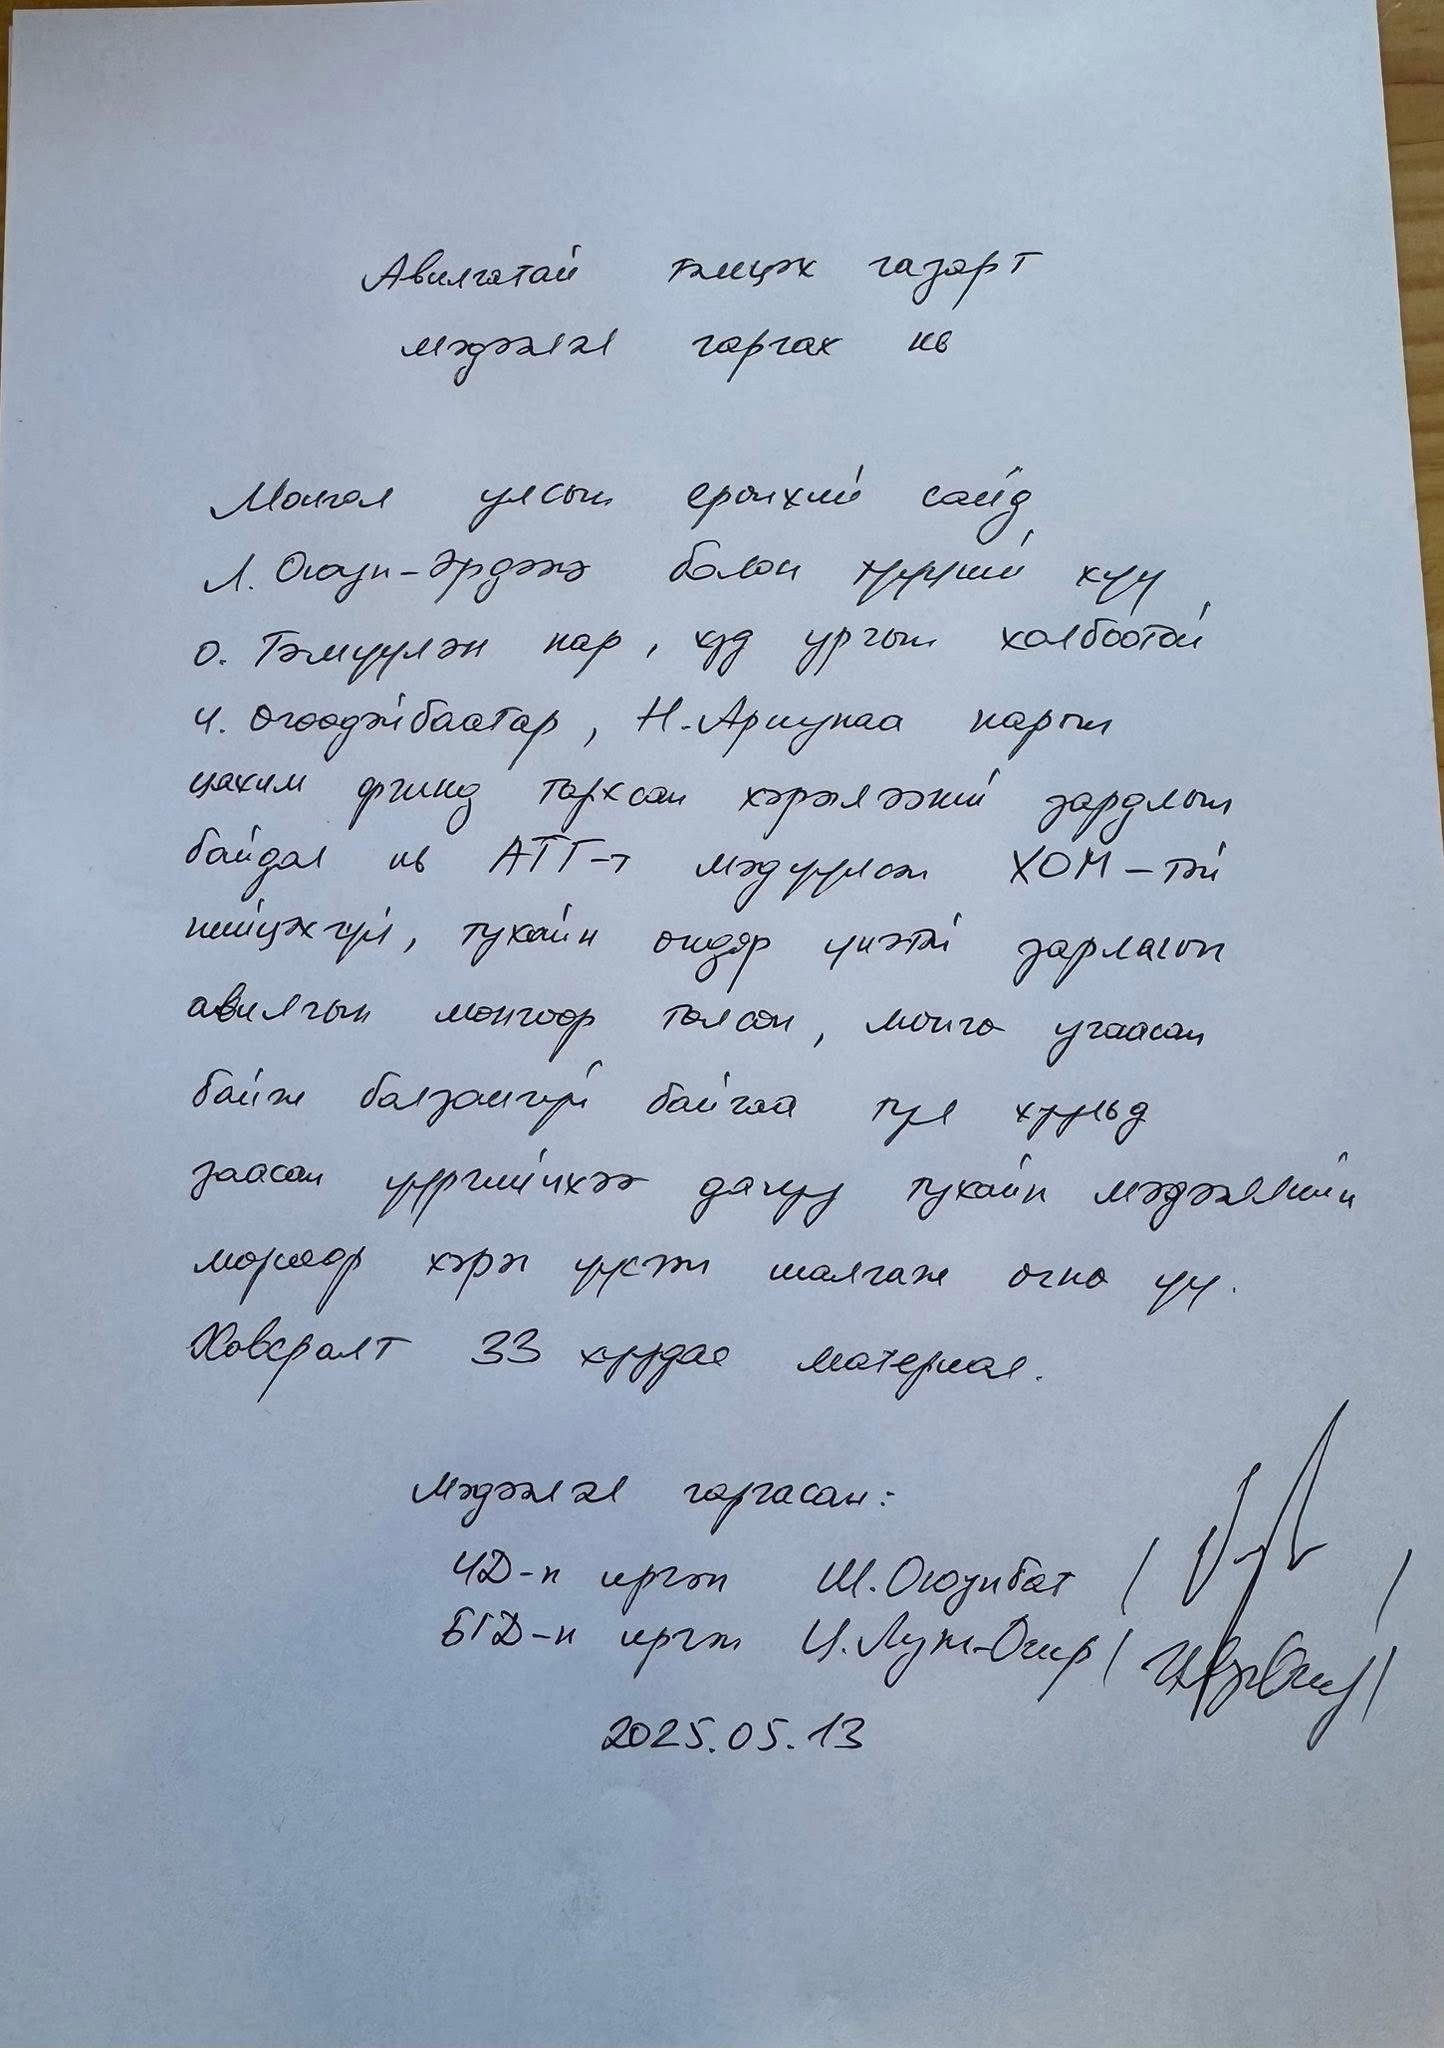 Авилгатай тэмцэх газарт
мэдээлэл гаргах нь
Монгол улсын ерөнхий сайд
Л. Оюун-Эрдэнэ болон түүний хүү
О. Тэмүүлэн нар, худ ургын холбоотой
Ч. Өгөөдэйбаатар, Н. Ариунаа нарын
цахим орчинд тархсан хэрэглээний зардлын
байдал нь АТГ-т мэдүүлсэн ХОМ-тэй
нийцэхгүй, тухайн өндөр үнэтэй зарлагын
авилгын мөнгөөр төлсөн, мөнгө угаасан
байж болзошгүй байгаа тул хуульд
заасан үүргийнхээ дагуу тухайн мэдээллийн
мөрөөр хэрэг үүсгэн шалгаж өгнө үү.
Хавсралт 33 хуудас материал.
Мэдээлэл гаргасан:
ЧД-н иргэн Ш. Оюунбат / /
БГД-н иргэн Ц. Лувсан-Очир / /
2025.05.13